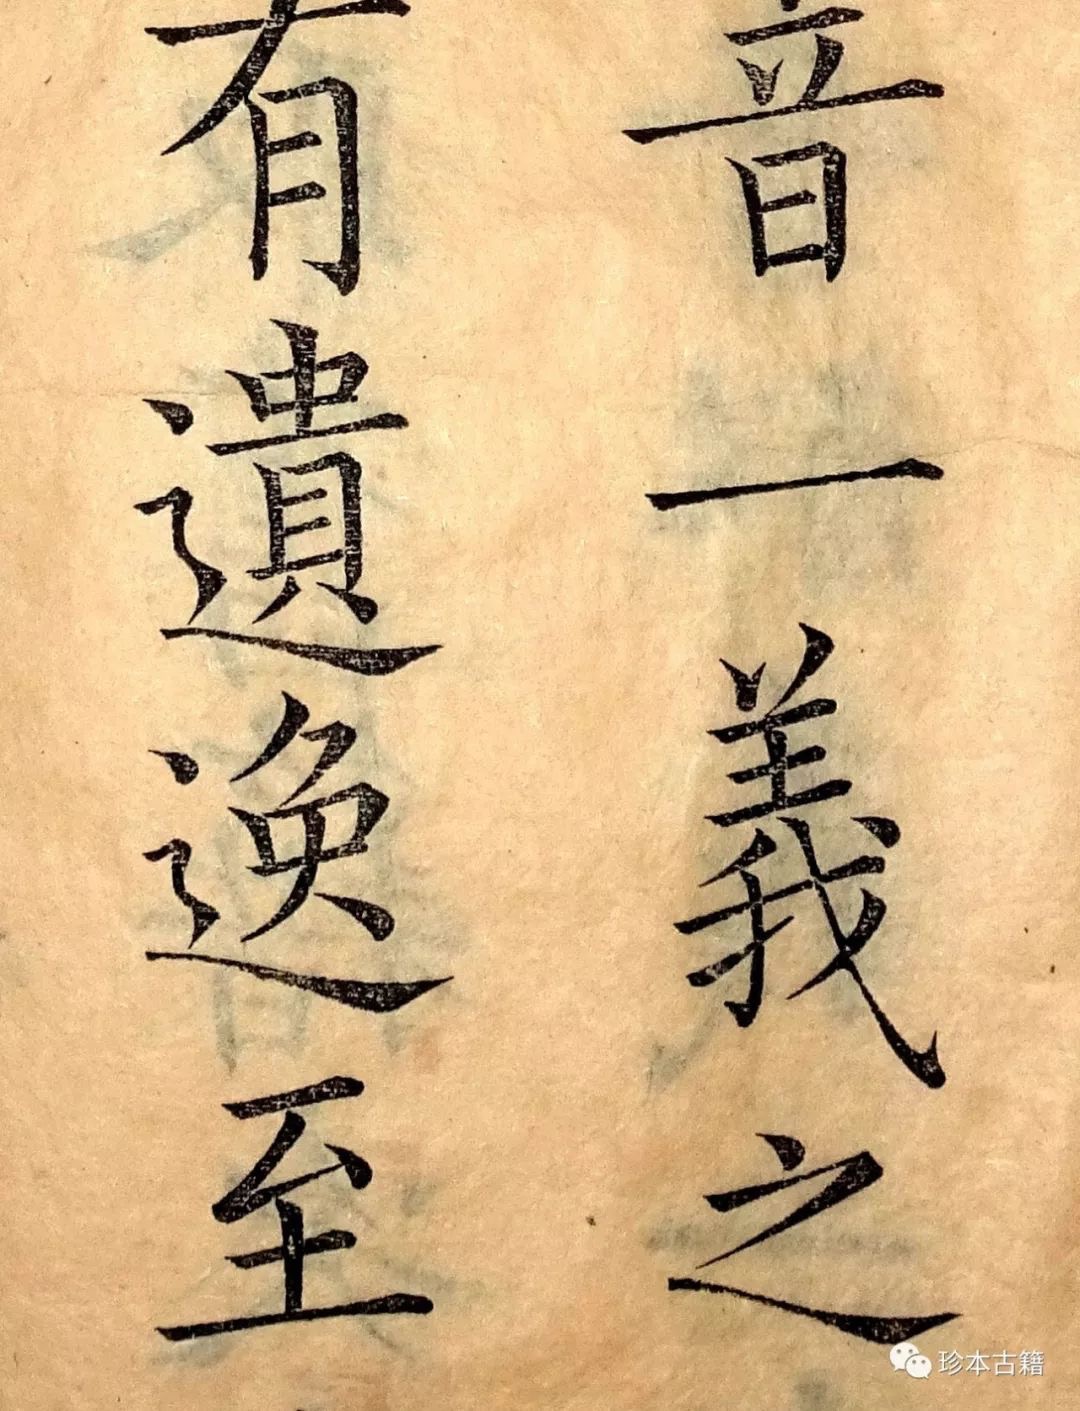 音一義之
有遺逸至
珍本古籍